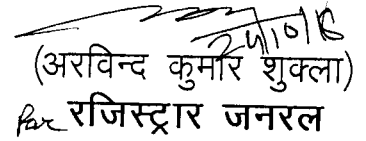 24/10/16
(अरविन्द कुमार शुक्ला)
For रजिस्ट्रार जनरल